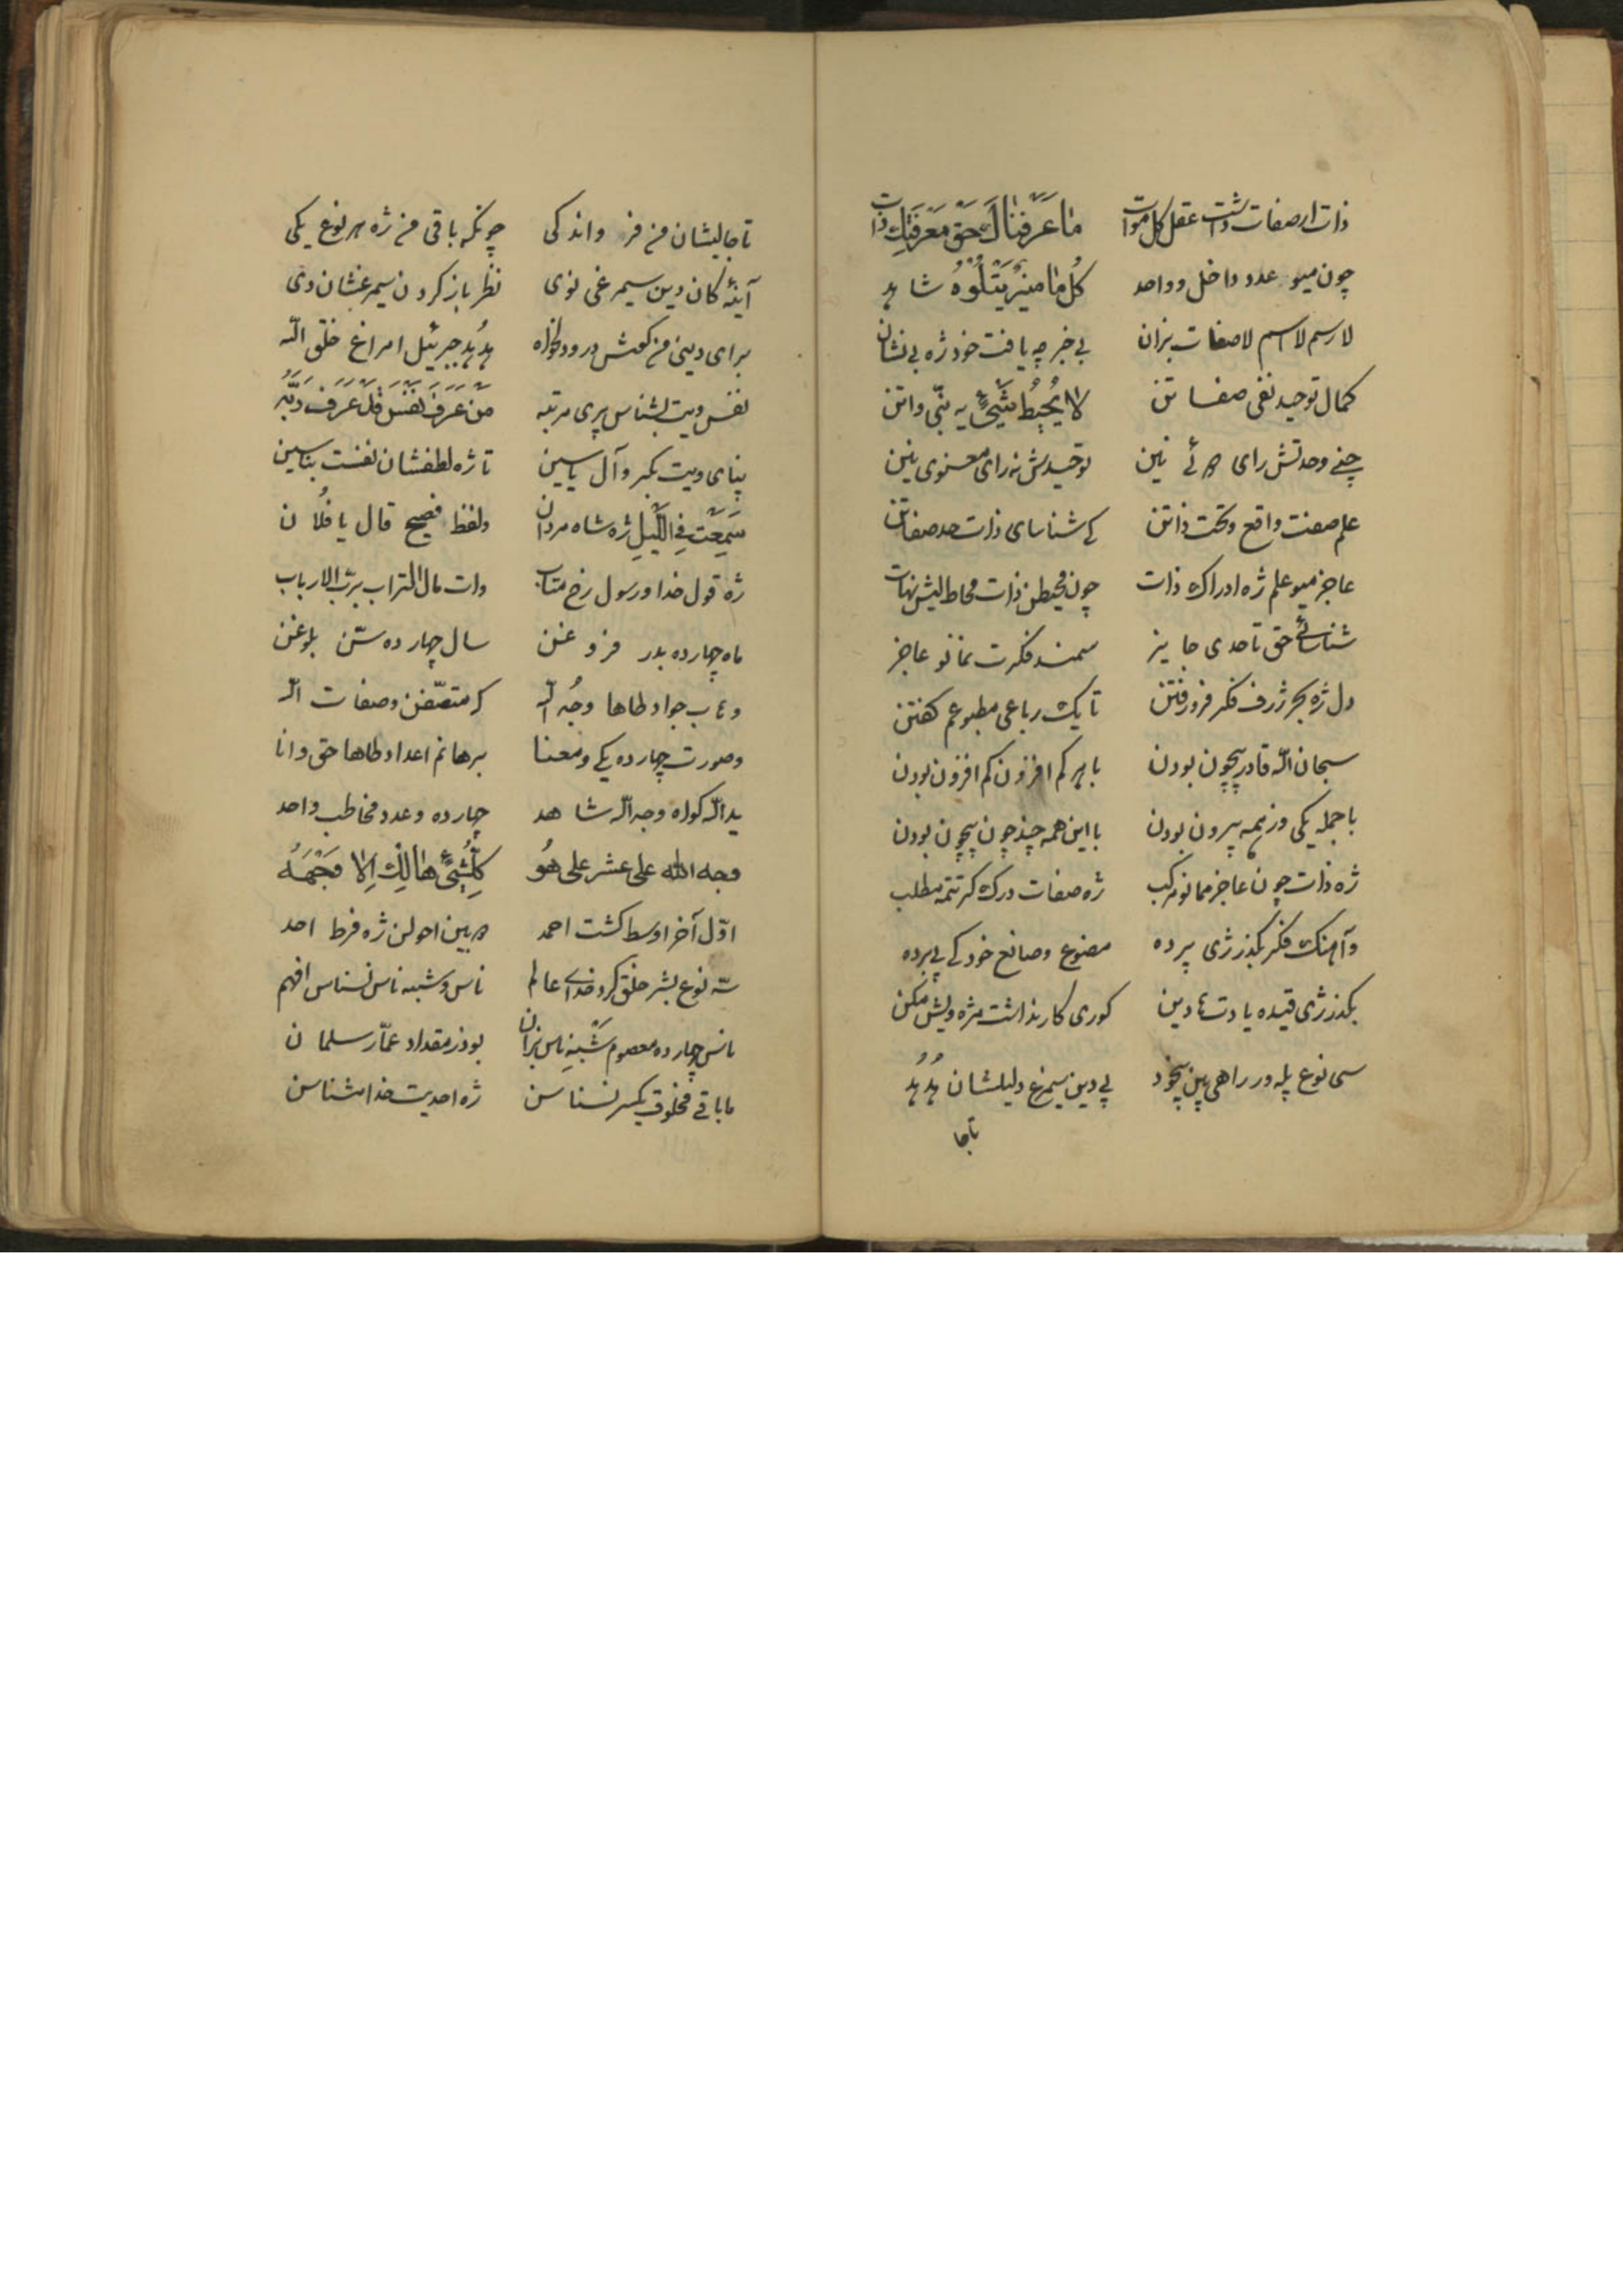 ذات ار صفات داشت عقل کل موات ما عرفناک حق معرفتک ذات
چون میو عدد داخل و واحد کل ما میز یتلوه شاهد
لا رسم لا اسم لا صفات بزان بی خبر چه یافت خود ژه بی نشان
کمال توحید نفی صفاتن لا یحیط شیء به نبی واتن
چنی وحدتش رای نین توحیدش نه رای معنوی نین
علم صفت واقع و تحت ذاتن کی شناسای ذات صد صفاتن
عاجز میو علم ژه ادراک ذات چون محیطن ذات محاط لیش نهات
شناسائی حق تا حدی جایز سمند فکرت نمانو عاجز
دل ژه بحر ژرف فکر فرو رفتن تا یک رباعی مطبوعم کفتن
سبحان الله قادر بیچون بودن با هر کم افزون کم افزون بودن
با جمله یکی وز همه بیرون بودن با این همه چند چون بیچون بودن
ژه ذات چون عاجز ممانو مرکب ژه صفات درک کر تتمه مطلب
و آهنک فکر بکذر ژی پرده مصنوع و صانع خود کی پی برده
بکذر ژی قیده یادت دین کوری کار نداشت مژه ولیش مکن
سی نوع پله ور راهی بین بیخود پی دین سیمرغ دلیلشان هُدهُد
تا جا
تا جا لیشان من فر و اندکی چونکه باقی من ژه هر نوع یکی
آینه کان دین سیمرغی نوی نظر باز کردن سیمرغشان دی
برای دینی من کمش درود هُدهُد جبرئیل امراغ خلق الله
نفس ویت بشناس بری مرتبه من عرف نفس قد عرف ربه
پنای ویت بکر و آل یاسین تا ژه لطفشان نفست بناسین
سمعت فی اللیل ژه شاه مردان و لفظ فصیح قال یا فُلان
ژه قول خدا و رسول رخ متاب وات مال التراب برب الارباب
ماه چهارده بدر فروغنن سال چهارده سن بلوغنن
و جواد طاها وجه الله کر متصفن و صفات الله
و صورت چهارده یکی و معنا برهانم اعداد طاها حق دانا
ید الله کواه وجه الله شاهد چهارده و عدد مخاطب واحد
وجه الله علی عشر علی هُو کل شیء هالک الا وجهه
اول آخر اوسط کشت احمد بین احولن ژه فرط احد
سه نوع بشر خلق کرد خدای عالم ناس و شبه ناس نسناس افهم
ناس چهارده معصوم شبه ناس بزان بوذر مقداد عمار سلمان
مابقی مخلوق یکسر نسناسن ژه احدیت خدا نشناسن